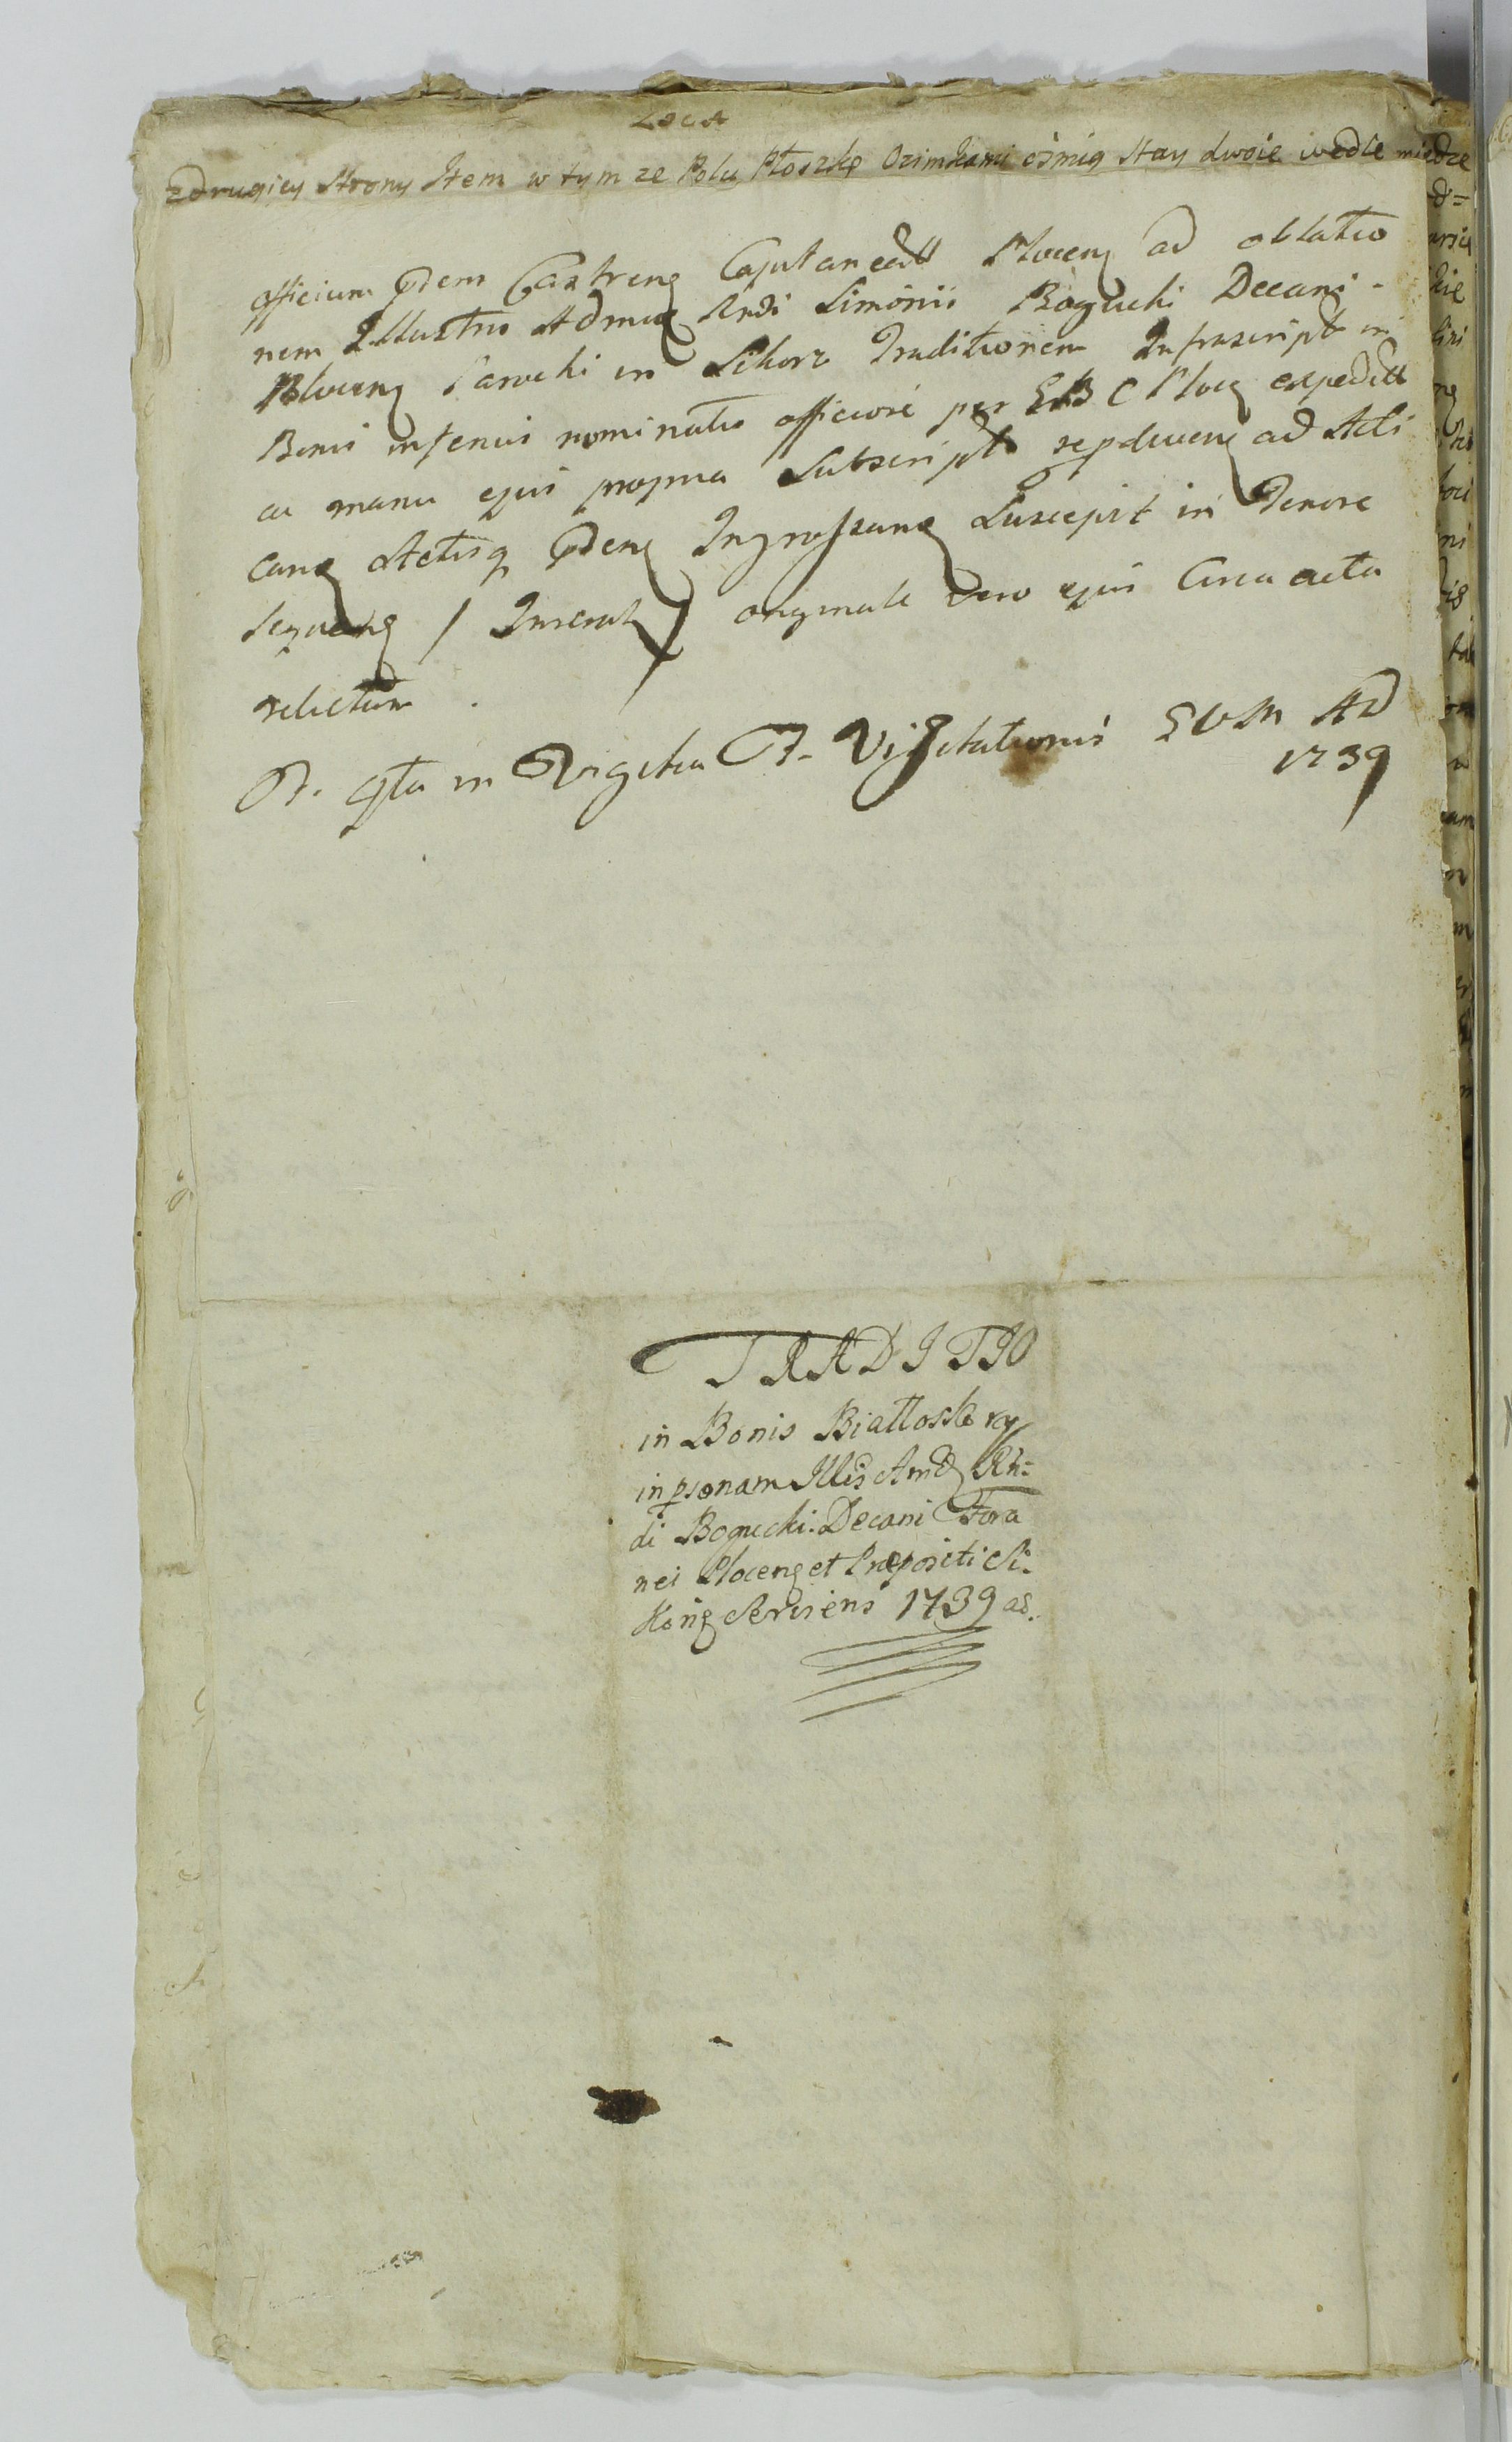 Loca
z drugiey Strony Item w tym ze Polu Płoszkę Ozimkami ośmią Stay dwoie wedle miedze
officium pdem Castren Capitaneatt Plocen ad oblatio
nem Illustris Admu Rndi Simonii Bogucki Decani
Plocen Parochi in Sikorz Traditionem Infrascript in
Bonis inferius nominatis officiose per SRBC Ploc expeditt
ac manu ejus propria Subscript repducen ad Acti
can Actisq pden Ingrossan Suscepit in Tenore
sequen / Inserat / originale vero ejus Circa acta
relictum.
F. 4ta in Vigilia F. Visitationis BVM AD
1739
TRADITIO
in Bonis Białłoskory
in psonam Illis Amd Rn=
di Bogucki: Decani Fora
nei Plocen et Præpositi Si-
Korz Serviens 1739 ad.